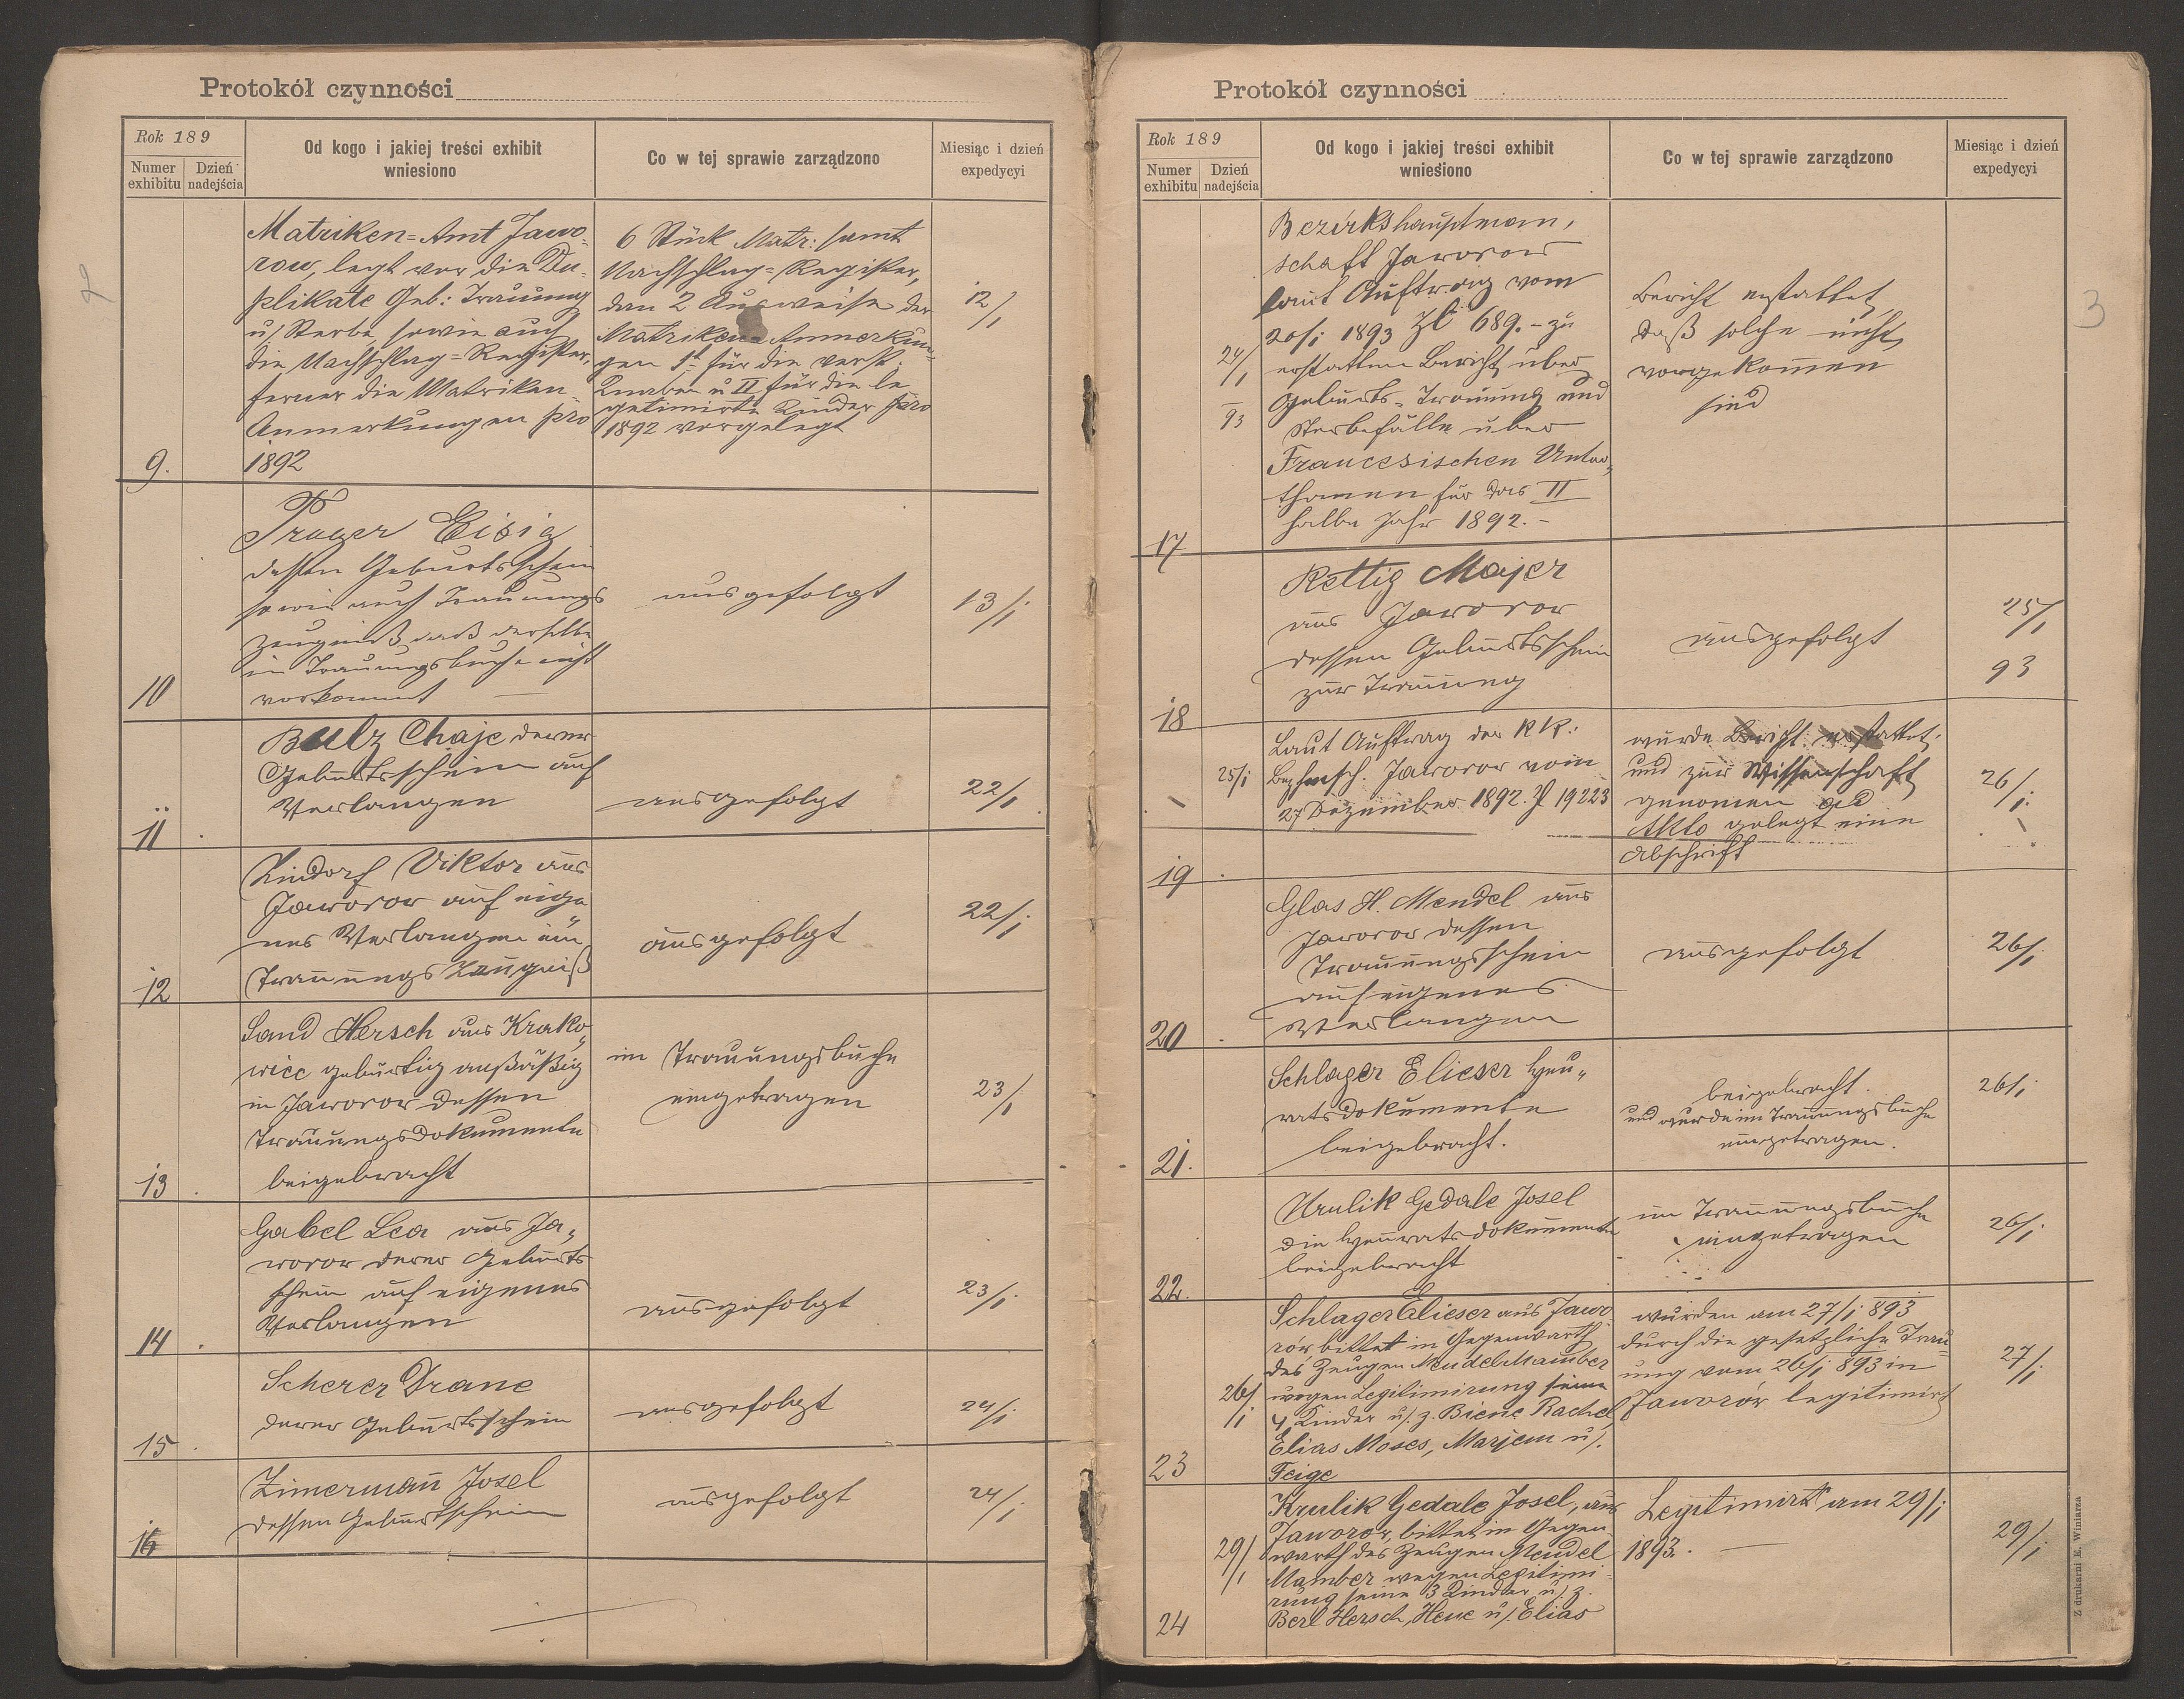 Protokół czynności
Rok 189
Numer exhibitu
Dzień nadejścia
Od kogo i jakiej treści exhibit wniesiono
Co w tej sprawie zarządzono
Miesiąc i dzień expedycyi
9.
Matriken=Amt Jawo-
row, legt vor die Du-
plikate Geb: Trauung
u/ Sterbe, sowie auch
die Nachschlag=Register,
ferner die Matriken
Anmerkungen pro
1892
6 Stück Matr: samt
Nachschlag=Register,
dan 2 Ausweise der
Matriken Anmerkun-
gen für die
Knaben u II für die le
getimirte Kinder pro
1892 vorgelegt
12/1
10
Prager Eisig
dessen Geburtsschein
sowie auch Trauungs
Zeugniß daß derselbe
im Trauungsbuche nicht
vorkommt
ausgefolgt
13/1
11
Bulz Chaje derer
Geburtsschein auf
Verlangen
ausgefolgt
22/1
12
Lindorf Viktor aus
Jaworow auf eige
nes Verlangen ein
Trauungs Zeugniß
ausgefolgt
22/1
13
Sand Hersch aus Krako-
wiec gebürtig anßäßig
in Jaworow dessen
Trauungsdokumente
beigebracht
im Trauungsbuche
eingetragen
23/1
14
Gabel Lea aus Ja-
worow derer Geburts
schein auf eigenes
Verlangen
ausgefolgt
23/1
15
Scherer Drane
derer Geburtsschein
ausgefolgt
24/1
16
Zimermañ Josel
dessen Geburtsschein
ausgefolgt
24/1
Protokół czynności
3
Rok 189
Numer exhibitu
Dzień nadejścia
Od kogo i jakiej treści exhibit wniesiono
Co w tej sprawie zarządzono
Miesiąc i dzień expedycyi
17
24/1
93
Bezirkshauptman,
schaft Jaworow
laut Auftrag vom
20/1 1893 Zl 689.- zu
erstatten Bericht über
Geburts- Trauung und
Sterbefälle über
Francesischen Unter-
thanen für das II
halbe Jahr 1892.-
Bericht erstattet,
daß solche nicht
vorgekom̃en
sind
18
Rettig Majer
aus Jaworow
dessen Geburtsschein
zur Trauung
ausgefolgt
25/1
93
19
25/1
Laut Auftrag der KK:
Bezhmsch. Jaworow vom
27 Dezember 1892. Z 19223
wurde Bericht erstattet;
und zur Wissenschaft
genomen
Akto gelegt eine
Abschrift
26/1
20
Glas H. Mendel aus
Jaworow dessen
Trauungsschein
auf eigenes
Verlangen
ausgefolgt
26/1
21.
Schlager Elieser Heu-
ratsdokumente
beigebracht.
beigebracht.
und wurde im Trauungsbuche
eingetragen.
26/1
22.
Krulik Gedale Josel
die Heuratsdokumente
beigebracht
im Trauungsbuche
eingetragen
26/1
23
26/1
Schlager Elieser aus Jawo
rów bittet in Gegenwarth
des Zeugen Mendel Mamber
wegen Legitimirung seine
4 Kinder u/. z. Biene Rachel,
Elias Moses, Marjem u/.
Feige
wurden am 27/1 893
durch die gesetzliche Trau-
ung vom 26/1 893 in
Jaworów legitimirt
27/1
24
29/1
Krulik Gedale Josel, aus
Jaworów, bittet in Gegen-
warth des Zeugen Mendel
Mamber wegen Legitimi-
rung seine 3 Kinder u/. z.
Berl Hersch, Hene u/. Elias
Legitimirt am 29/1
1893.
29/1
Z drukarni E. Winiarza